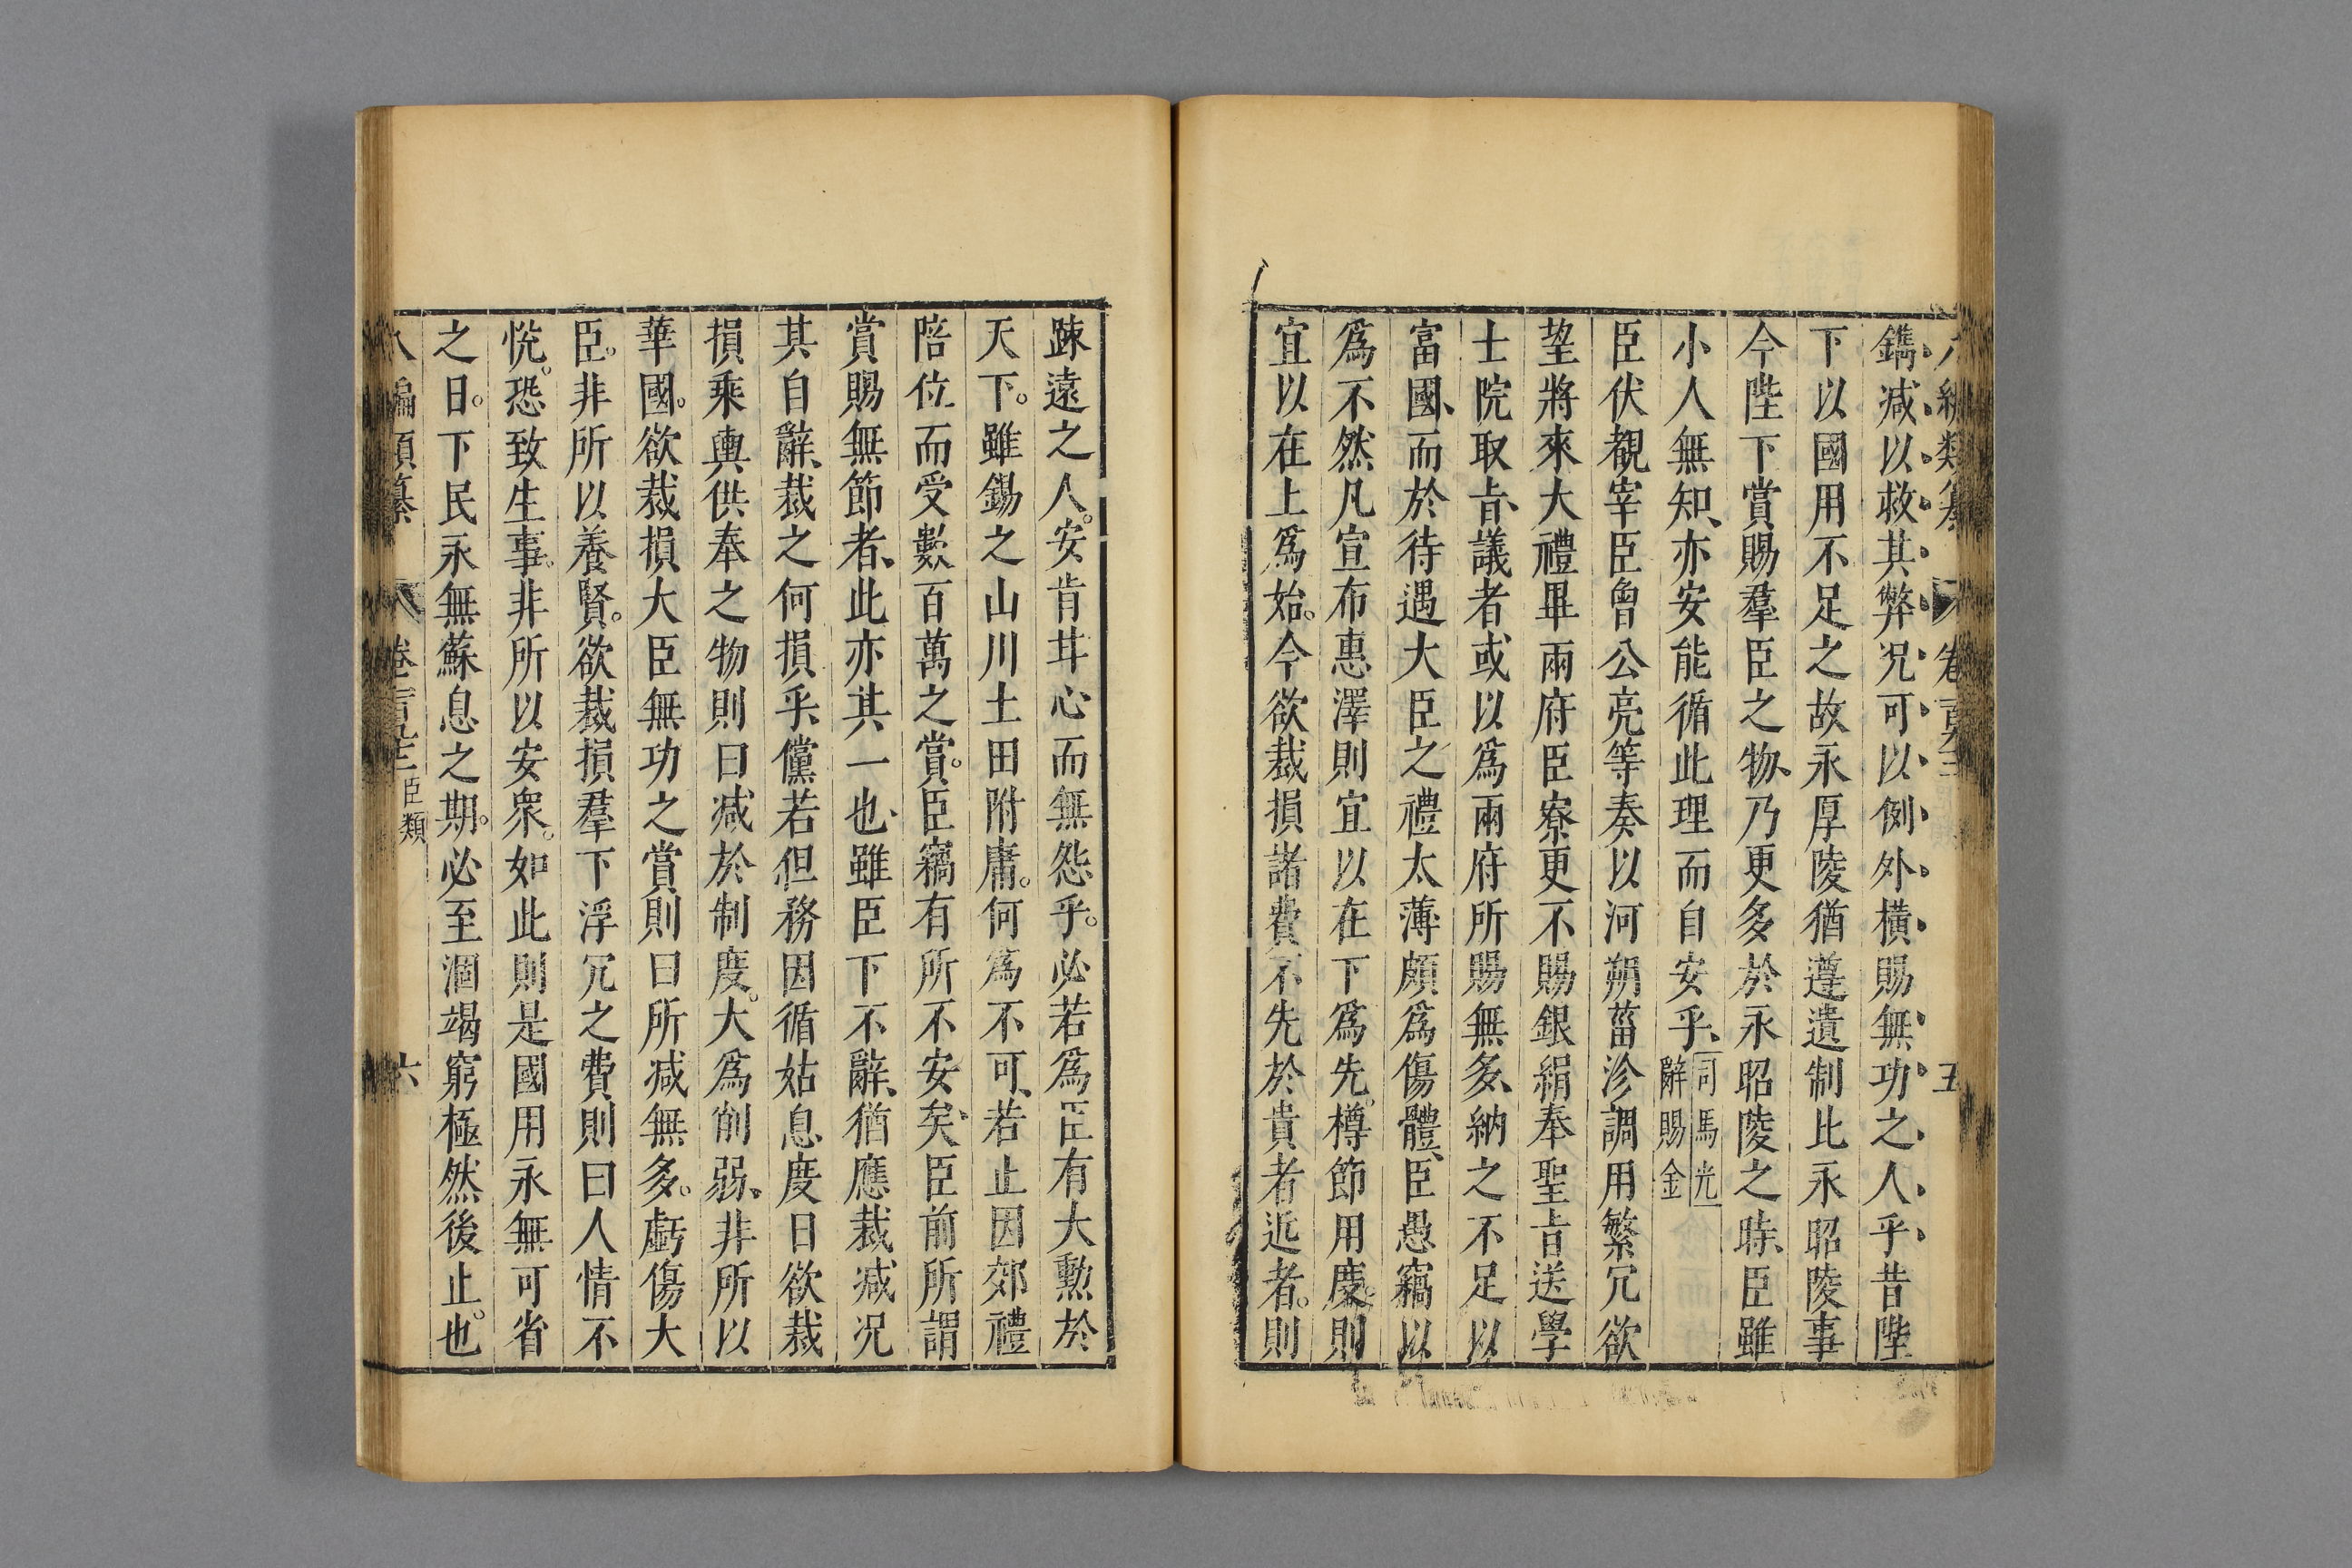 編類纂 卷 五
鐫减以救其弊况可以例外橫賜無功之人乎昔陛
下以國用不足之故永厚陵猶遵遺制比永昭陵事
今陛下賞賜羣臣之物乃更多於永昭陵之時臣雖
小人無知亦安能循此理而自安乎司馬光辭賜金
臣伏覩宰臣曾公亮等奏以河朔菑沴調用繁冗欲
望將來大禮畢兩府臣寮更不賜銀絹奉聖旨送學
士院取旨議者或以爲兩府所賜無多納之不足以
富國而於待遇大臣之禮太薄頗爲傷體臣愚竊以
爲不然凡宣布惠澤則宜以在下爲先樽節用度則
宜以在上爲始今欲裁損諸費不先於貴者近者則
踈遠之人安肯甘心而無怨乎必若爲臣有大勲於
天下雖錫之山川土田附庸何爲不可若止因郊禮
陪位而受數百萬之賞臣竊有所不安矣臣前所謂
賞賜無節者此亦其一也雖臣下不辭猶應裁减况
其自辭裁之何損乎儻若但務因循姑息度日欲裁
損乘輿供奉之物則曰减於制度大爲削弱非所以
華國欲裁損大臣無功之賞則曰所减無多虧傷大
臣非所以養賢欲裁損羣下浮冗之費則曰人情不
悅恐致生事非所以安衆如此則是國用永無可省
之日下民永無蘇息之期必至涸竭窮極然後止也
八編類纂 卷 臣類 六